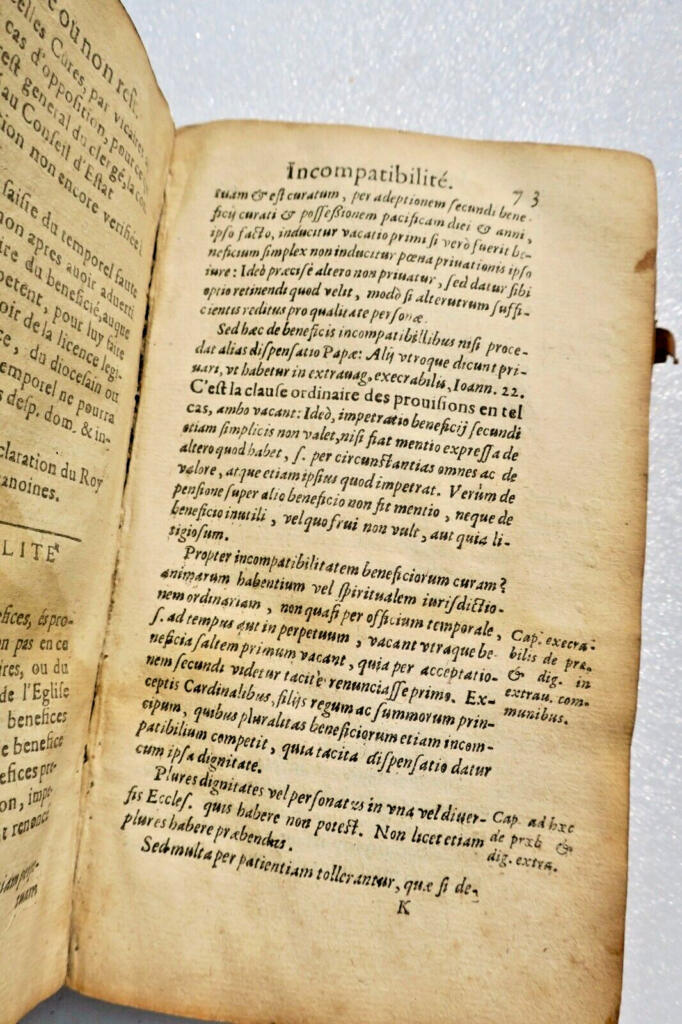 e ou non resi.
elles Cures, par vicaires
cas d'opposition, pource
rest general du clergé, la con
au Conseil d'Estat
tion non encore verifiée
saisie du temporel faute
non apres auoir aduerti
re du beneficié, auque
petent, pour luy faire
oir de la licence legi-
ce, du diocesain ou
emporel ne pourra
s desp. dom. & in-
claration du Roy
anoines.
LITE
efices, és pro-
on pas en ce
ires, ou du
de l'Eglise
benefices
e benefice
efices pre-
on, impe-
t renonce
tuam
Incompatibilité. 73
tuam & est curatum, per adeptionem secundi bene
ficij curati & possessionem pacificam diei & anni,
ipso facto, inducitur vacatio primi si verò fuerit be-
neficium simplex non inducitur pœna priuationis ipso
iure: Ideò præcisè altero non priuatur, sed datur sibi
optio retinendi quod velit, modò si alterutrum suffi-
cientis reditus pro qualitate personæ.
Sed hæc de beneficis incompatibillibus nisi proce-
dat alias dispensatio Papæ: Alij vtroque dicunt pri-
uari, vt habetur in extrauag, execrabilis, Ioann. 22.
C'est la clause ordinaire des prouisions en tel
cas, ambo vacant: Ideò, impetratio beneficij secundi
etiam simplicis non valet, nisi fiat mentio expressa de
altero quod habet, s. per circunstantias omnes ac de
valore, atque etiam ipsius quod impetrat. Verùm de
pensione super alio beneficio non fit mentio, neque de
beneficio inutili, vel quo frui non vult, aut quia li-
tigiosum.
Propter incompatibilitatem beneficiorum curam?
animarum habentium vel spiritualem iurisdictio-
nem ordinariam, non quasi per officium temporale,
s. ad tempus aut in perpetuum, vacant vtraque be-
neficia saltem primum vacant, quia per acceptatio-
nem secundi videtur tacitè renunciasse primo. Ex-
ceptis Cardinalibus, filijs regum ac summorum prin-
cipum, quibus pluralitas beneficiorum etiam incom-
patibilium competit, quia tacita dispensatio datur
cum ipsa dignitate.
Cap. execra-
bilis de præ.
& dig. in
extrau. com-
munibus.
Plures dignitates vel personatus in vna vel diuer-
sis Eccles. quis habere non potest. Non licet etiam
plures habere præbendas.
Cap. ad hæc
de præb &
dig. extra.
Sed multa per patientiam tollerantur, quæ si de-
K